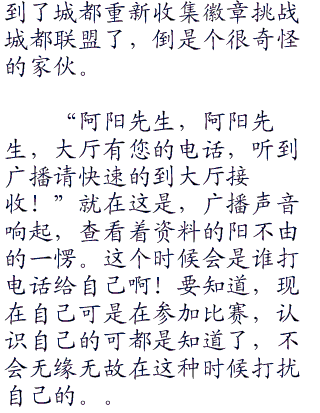 到了城都重新收集徽章挑战
城都联盟了，倒是个很奇怪
的家伙。
“阿阳先生，阿阳先
生，大厅有您的电话，听到
广播请快速的到大厅接
收！”就在这是，广播声音
响起，查看着资料的阳不由
的一愣。这个时候会是谁打
电话给自己啊！要知道，现
在自己可是在参加比赛，认
识自己的可都是知道了，不
会无缘无故在这种时候打扰
自己的。。